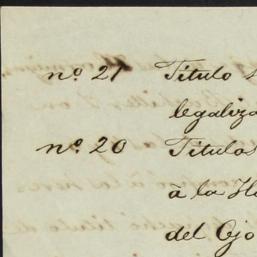 nº. 21 Titulo
legaliza
nº. 20 Titulos
à la
del Ojo